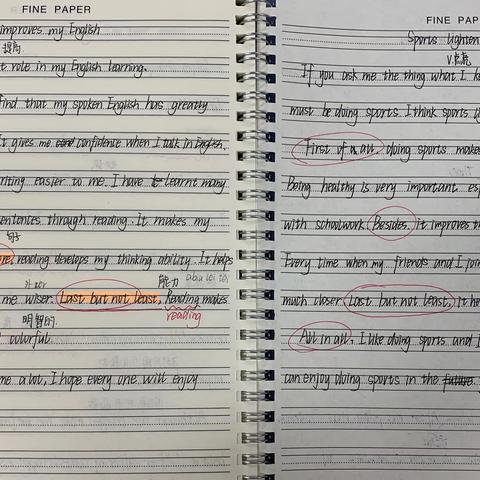 FINE PAPER
improves my English
提高
t role in my English learning.
find that my spoken English has greatly
It gives me confidence when I talk in English.
riting easier to me. I have learnt many
sentences through reading. It makes my
句子
re, reading develops my thinking ability. It helps
能力
me wiser. Last but not least, Reading makes
明智的. reading
colorful.
me a lot, I hope every one will enjoy
FINE PAP
Sports lighten
If you ask me the thing what I
must be doing sports. I think sports
First of all, doing sports makes
Being healthy is very important esp
with schoolwork. Besides, it improves
Every time when my friends and I join
much closer. Last but not least, it he
All in all, I like doing sports and
can enjoy doing sports in the future.